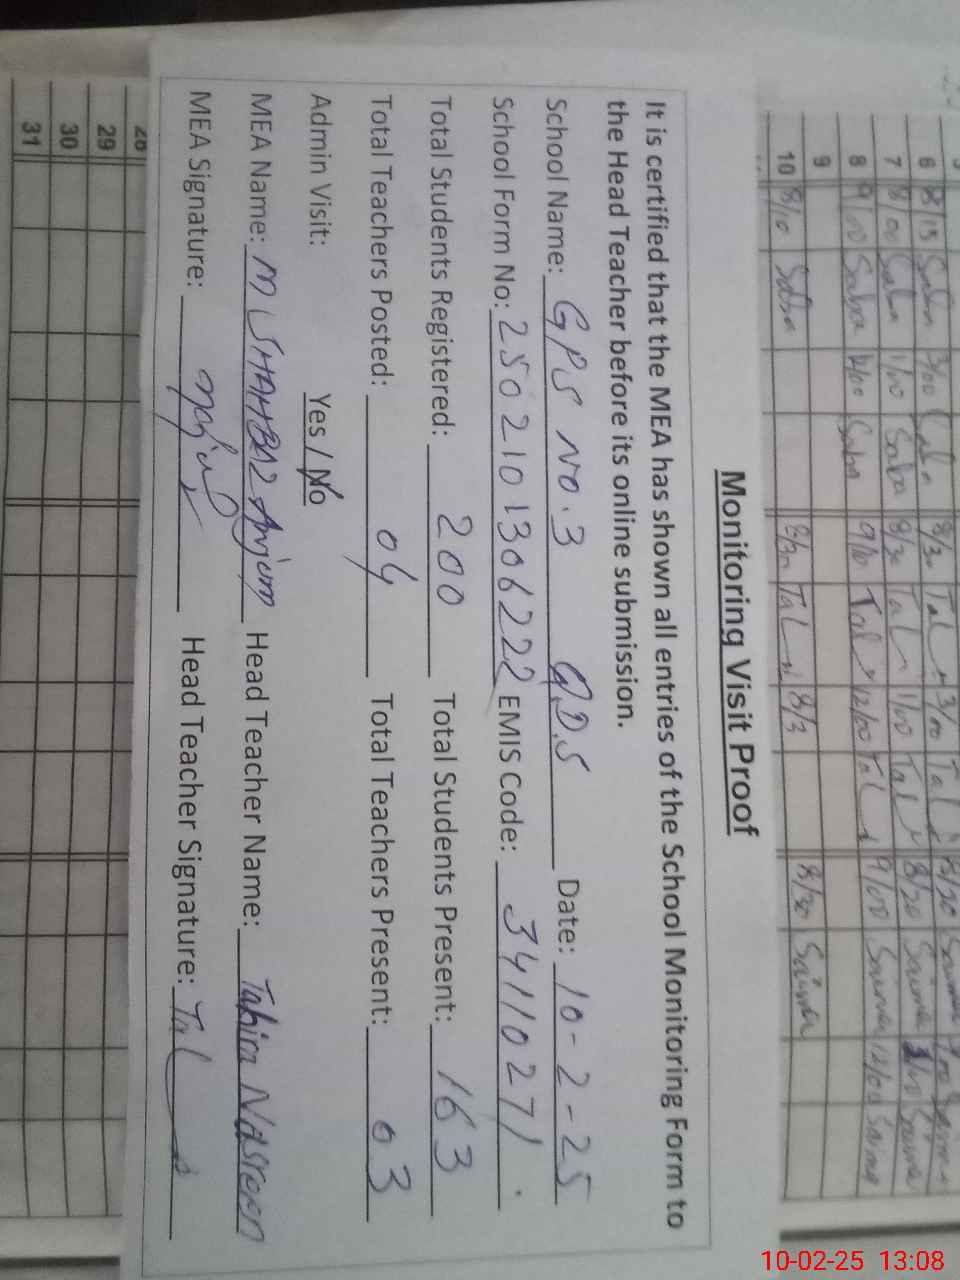 Monitoring Visit Proof
It is certified that the MEA has shown all entries of the School Monitoring Form to
the Head Teacher before its online submission.
School Name: GPS NO.3 Q.D.S Date: 10-2-25
School Form No: 2502101306222 EMIS Code: 34110271
Total Students Registered: 200 Total Students Present: 163
Total Teachers Posted: 04 Total Teachers Present: 03
Admin Visit: Yes / No
MEA Name: M SHAHBAZ Anjum Head Teacher Name: Tahira Nasreen
MEA Signature: Head Teacher Signature:
6 8/15 Saba 3/00 Saba 8/30 3/00 8/30
7 8/00 Saba 1/00 Saba 8/30 11/00 8/20 Saima
8 9/00 Saba 12/00 Saba 9/00 12/00 9/00 Saima 12/00 Saima
9
10 8/10 Saba 8/30 8/3 8/30 Saima
28
29
30
31
10-02-25 13:08